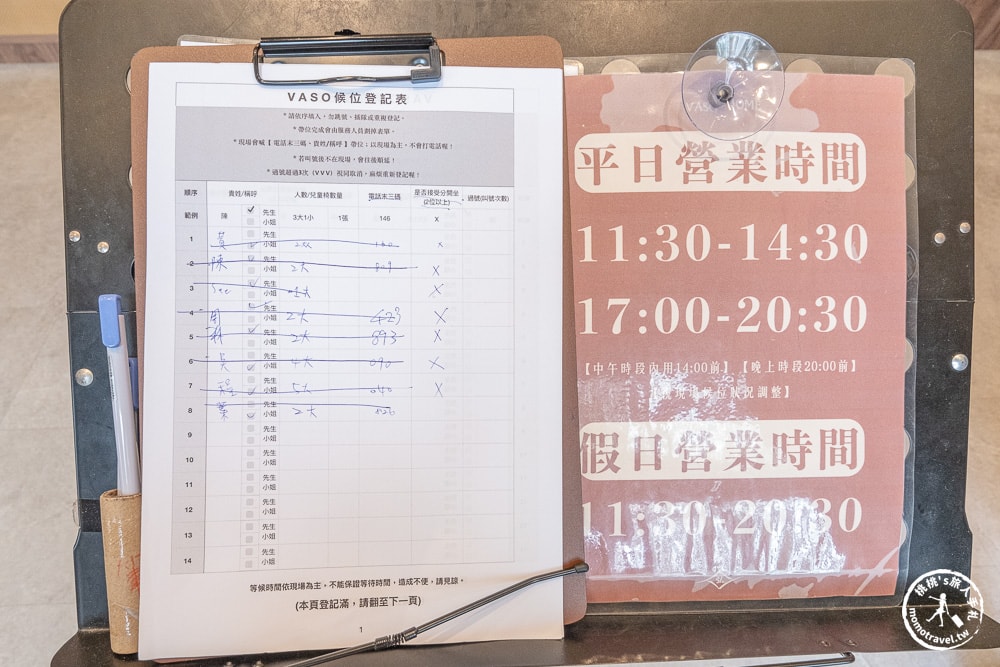 VASO候位登記表
*請依序填入,勿跳號、插隊或重複登記。
*帶位完成會由服務人員劃掉表單。
*現場會喊【電話末三碼、貴姓/稱呼】帶位;以現場為主,不會打電話喔!
*若叫號後不在現場,會往後順延!
*過號超過3次(VVV)視同取消,麻煩重新登記喔!
順序 貴姓/稱呼 人數/兒童椅數量 電話末三碼 是否接受分開坐(2位以上) 過號(叫號次數)
範例 陳 先生 小姐 3大1小 1張 146 X
1 黃 先生 小姐 X
2 陳 先生 小姐 2大 X
3 先生 小姐 X
4 周 先生 小姐 2大 423 X
5 林 先生 小姐 2大 893 X
6 吳 先生 小姐 4大 090 X
7 先生 小姐 5大 040 X
8 葉 先生 小姐 2大
9 先生 小姐
10 先生 小姐
11 先生 小姐
12 先生 小姐
13 先生 小姐
14 先生 小姐
等候時間依現場為主。不能保證等待時間,造成不便,請見諒。
(本頁登記滿,請翻至下一頁)
1
平日營業時間
11:30-14:30
17:00-20:30
【中午時段內用14:00前】【晚上時段20:00前】
現場候位狀況調整】
假日營業時間
11:30-20:30
桃桃's旅人手札
momotravel.tw